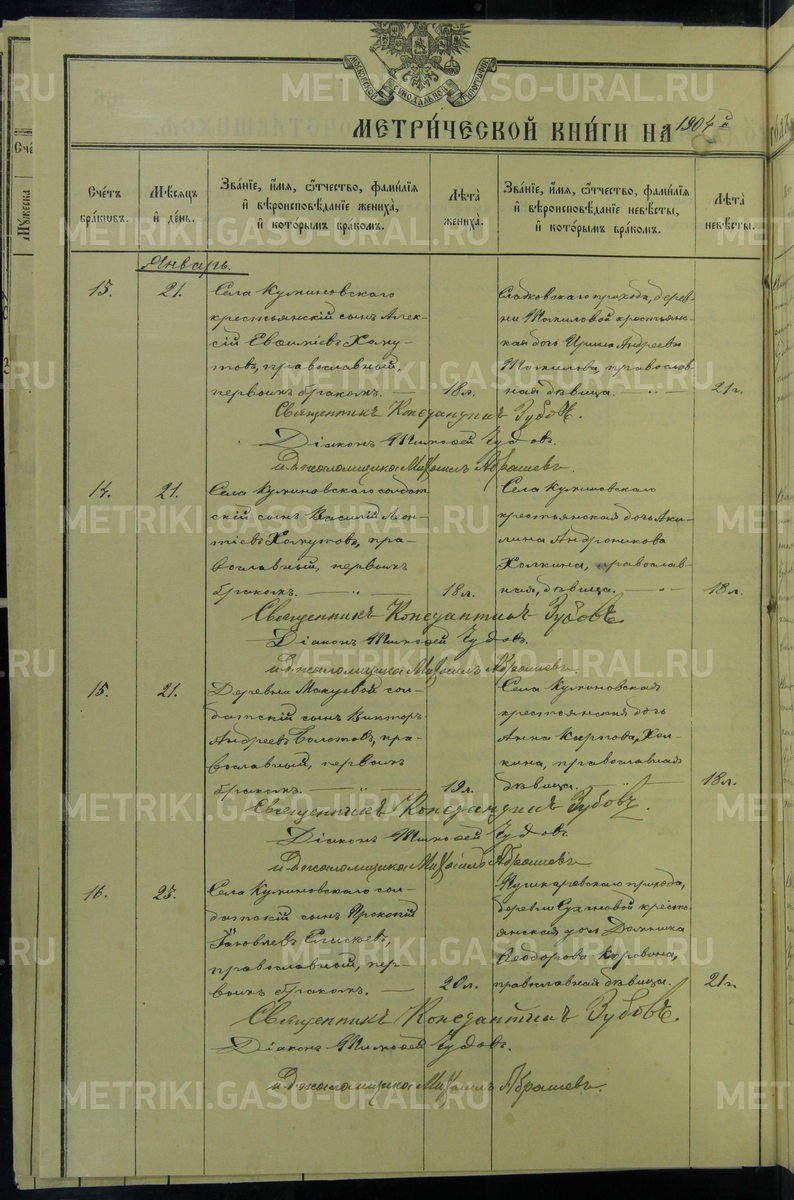 МОСКОВСКОЙ СИНОДАЛЬНОЙ ТИПОГРАФИИ
МЕТРИ́ЧЕСКОЙ КНИ́ГИ НА 1904 й
Счетъ бра́ковъ.
Мѣсяцъ и де́нь.
Зва́ніе, и́мя, о́тчество, фами́лія и вѣроисповѣ́даніе жениха́, и кото́рымъ бра́комъ.
Лѣта̀ жениха̀.
Зва́ніе, и́мя, о́тчество, фами́лія и вѣроисповѣ́даніе невѣ́сты, и кото́рымъ бра́комъ.
Лѣта̀ невѣ́сты.
Счё
Мужеска
Январь.
13. 21.
Села Куминовскаго
крестьянскій сынъ Алек-
сій Евѳиміевъ Хому-
товъ, православный,
первымъ бракомъ. —
18 л.
Сладковскаго прихода, дерев-
ни Томиловой крестьян-
ская дочь Ирина Андреева
Томилова, православ-
ная дѣвица. — „ —
21 г.
Священникъ Константинъ Зубовъ.
Діаконъ Тимоѳей Чудовъ.
и. д. псаломщика Михаилъ Абрашевъ.
14. 21.
Села Куминовскаго солдат-
скій сынъ Василій Леон-
тіевъ Хомутовъ, пра-
вославный, первымъ
бракомъ. — „ —
18 л.
Села Куминовскаго
крестьянская дочь Аки-
лина Андроникова
Холкина, православ-
ная, дѣвица. — „ —
18 л.
Священникъ Константинъ Зубовъ
Діаконъ Тимоѳей Чудовъ.
и. д. псаломщика Михаилъ Абрашевъ.
15. 21.
Деревни Макуевой сол-
датскій сынъ Викторъ
Андреевъ Болотовъ, пра-
вославный, первымъ
бракомъ. — „ —
19 л.
Села Куминовская
крестьянская дочь
Анна Карпова, Хол-
кина, православная
дѣвица. — „ —
18 л.
Священникъ Константинъ Зубовъ.
Діаконъ Тимоѳей Чудовъ.
и. д. псаломщика Михаилъ Абрашевъ
16. 23.
Села Куминовскаго сол-
датскій сынъ Прокопій
Іаковлевъ Елисѣевъ,
православный, пер-
вымъ бракомъ. —
20 л.
Пушкаревскаго прихода,
деревни Сухиновой кресть-
янская дочь Домника
Ѳеодорова Коровина,
православная дѣвица.
21 г.
Священникъ Константинъ Зубовъ.
Діаконъ Тимоѳей Чудовъ.
и. д. псаломщика Михаилъ Абрашевъ.
METRIKI.GASO-URAL.RU